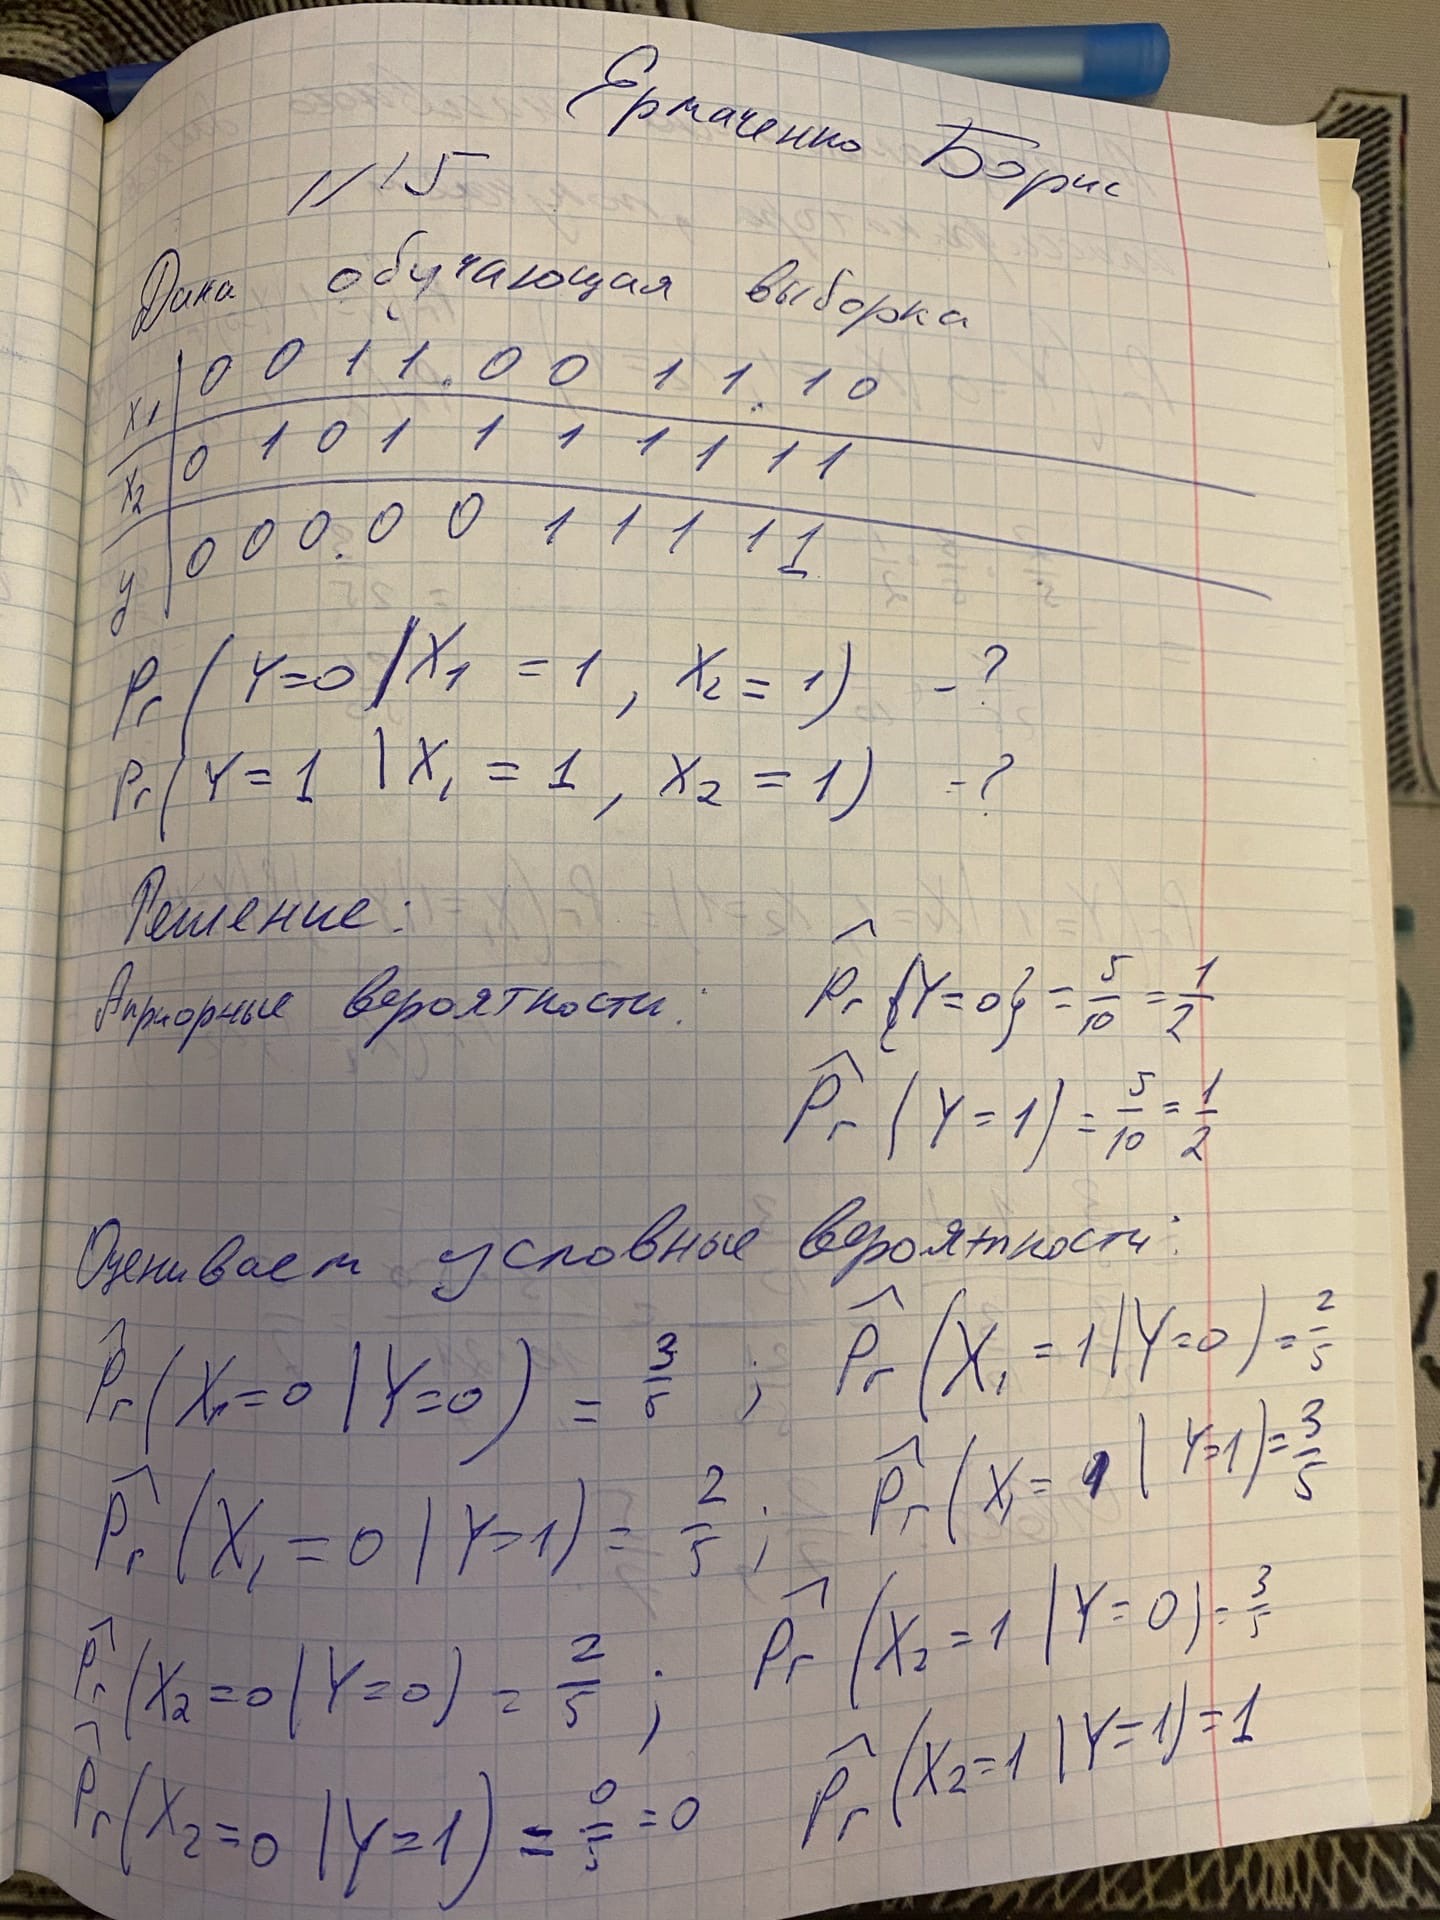 Ермаченко Борис
N 15
Дана обучающая выборка
x1 | 0 0 1 1 0 0 1 1 1 0
x2 | 0 1 0 1 1 1 1 1 1 1
y | 0 0 0 0 0 1 1 1 1 1
Pr(Y=0 | X1 = 1, X2 = 1) - ?
Pr(Y=1 | X1 = 1, X2 = 1) - ?
Решение:
Априорные вероятности: P̂r{Y=0} = 5/10 = 1/2
P̂r(Y=1) = 5/10 = 1/2
Оцениваем условные вероятности:
P̂r(X1=0 | Y=0) = 3/5 ; P̂r(X1=1 | Y=0) = 2/5
P̂r(X1=0 | Y=1) = 2/5 ; P̂r(X1=1 | Y=1) = 3/5
P̂r(X2=0 | Y=0) = 2/5 ; P̂r(X2=1 | Y=0) = 3/5
P̂r(X2=0 | Y=1) = 0/5 = 0 P̂r(X2=1 | Y=1) = 1